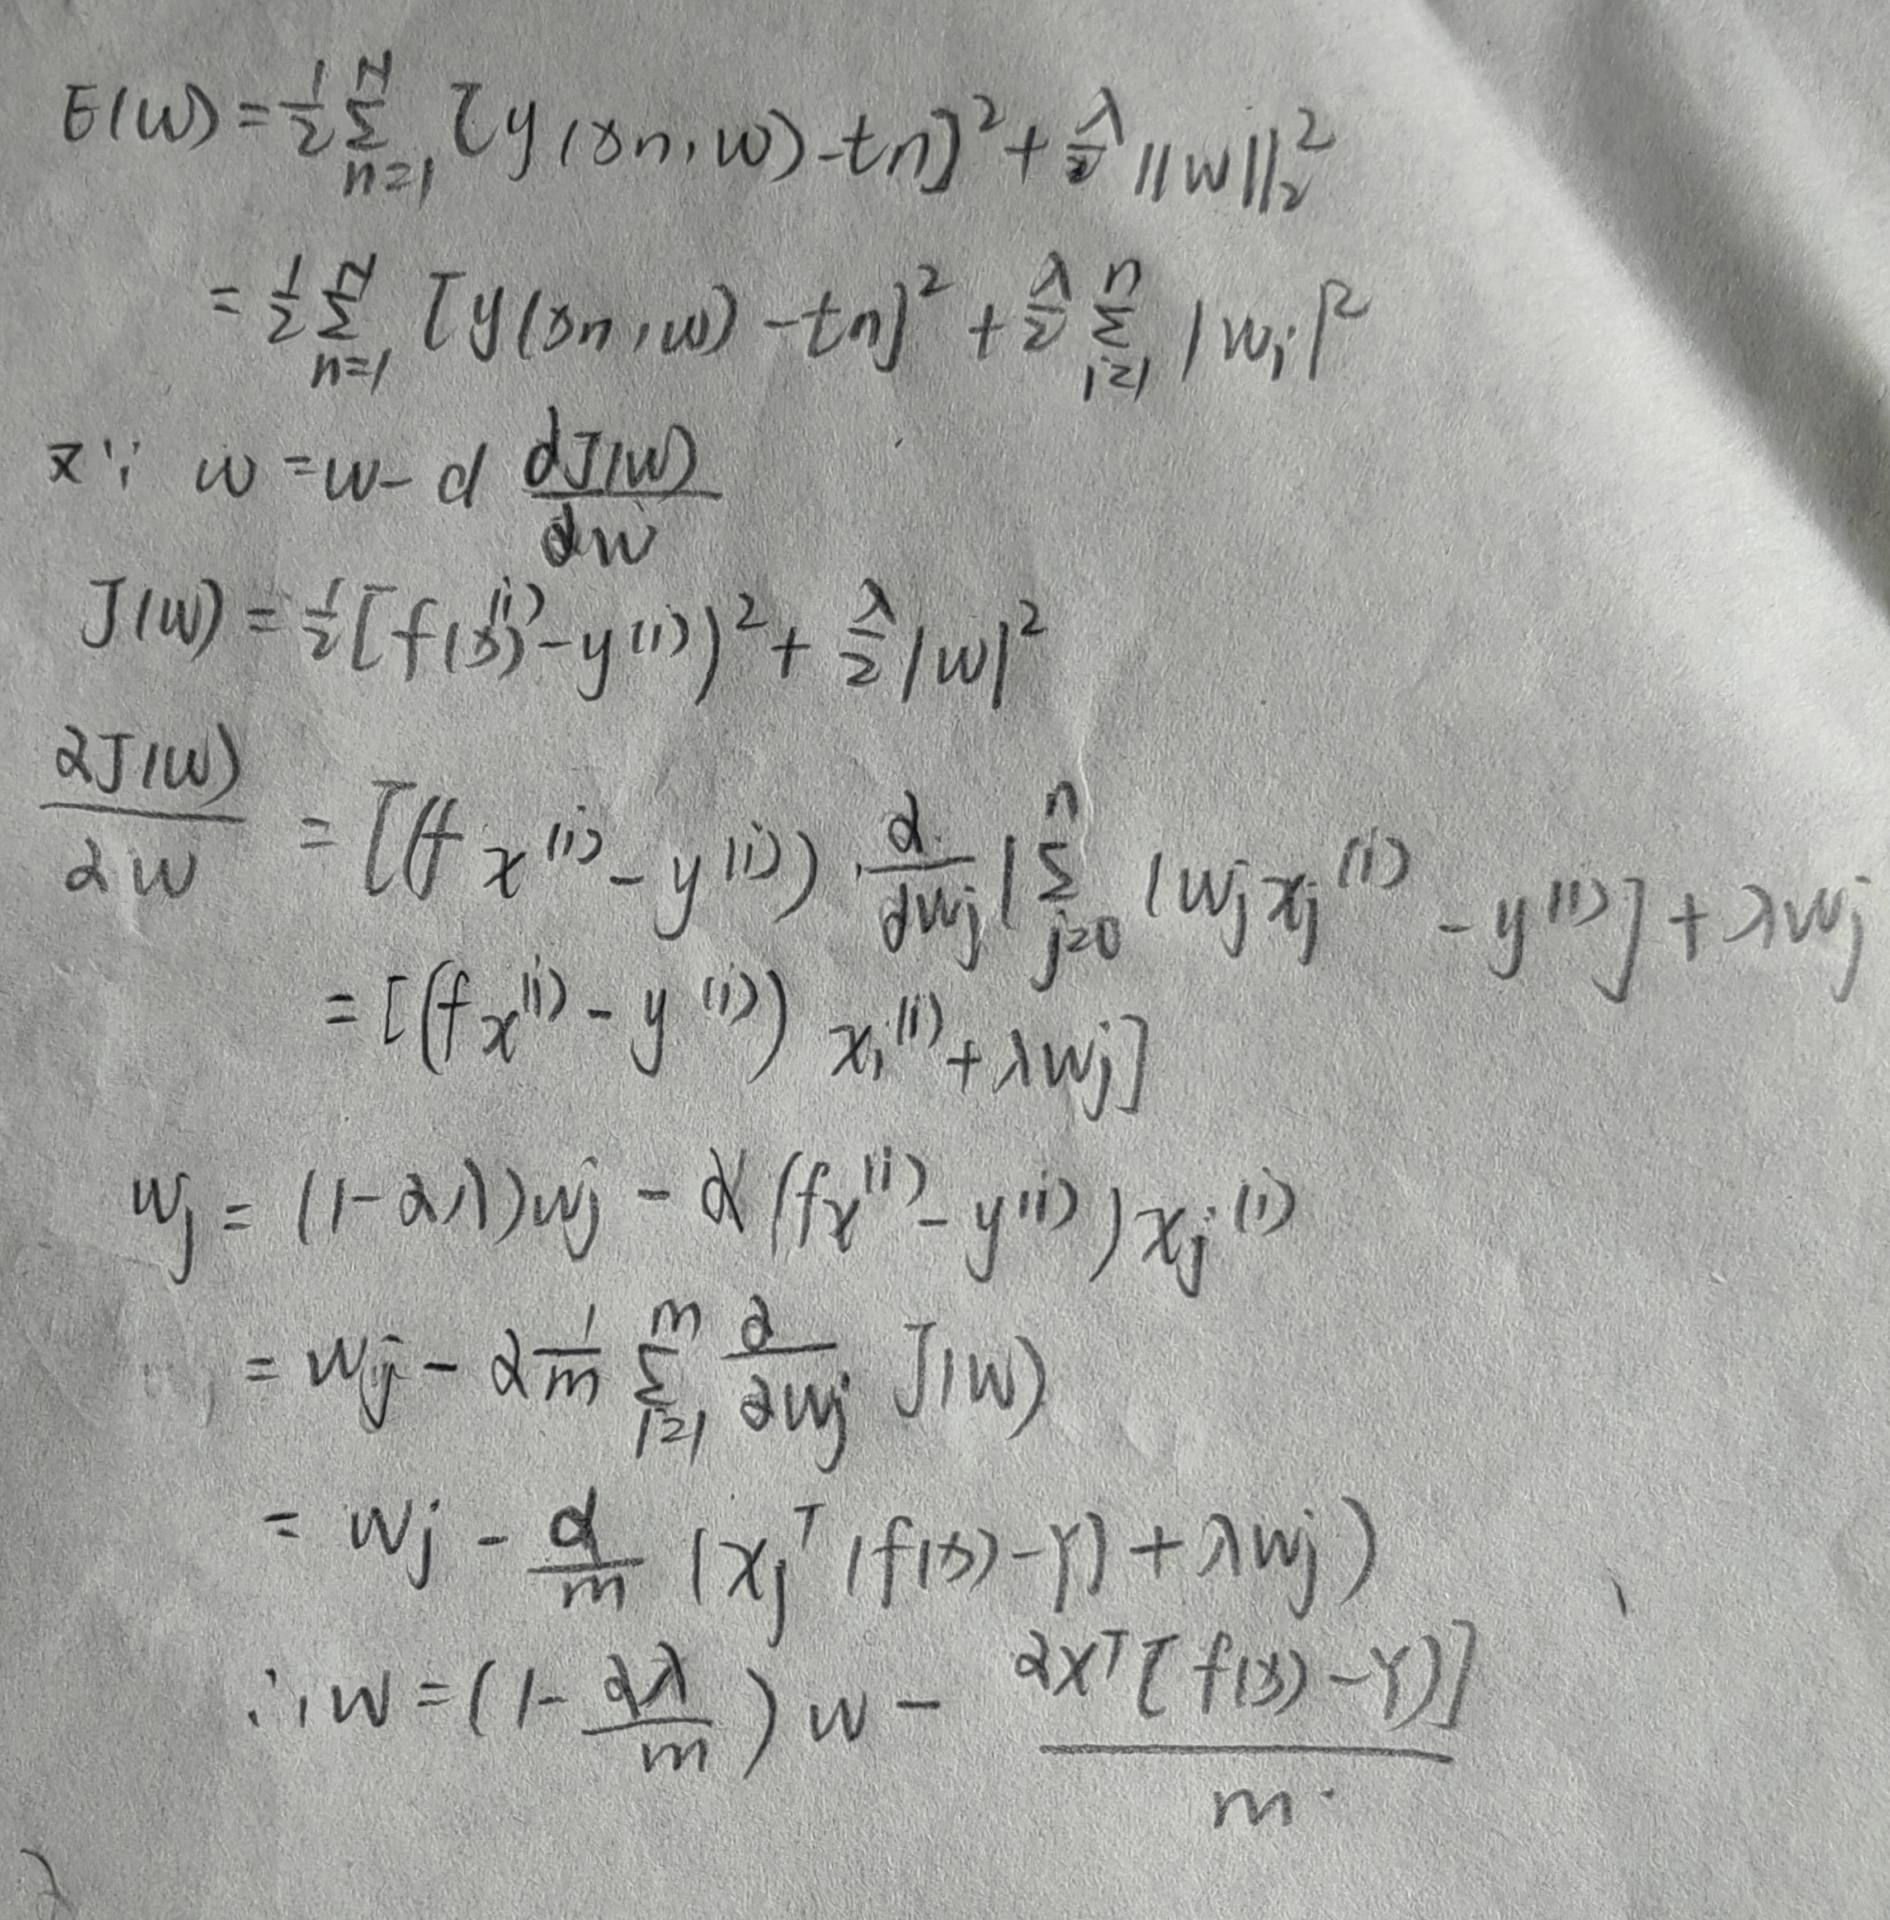 E(w) = 1/2 Σ_{n=1}^{N} [y(xn, w) - tn]² + λ/2 ||w||₂²
= 1/2 Σ_{n=1}^{N} [y(xn, w) - tn]² + λ/2 Σ_{i=1}^{n} |wi|²
又∵ w = w - α dJ(w)/dw
J(w) = 1/2 [f(x)^(i) - y^(i))² + λ/2 |w|²
∂J(w)/∂w = [(f x^(i) - y^(i)) ∂/∂wj (Σ_{j=0}^{n} (wj xj^(i) - y^(i)] + λwj
= [(f x^(i) - y^(i)) xi^(i) + λwj]
wj = (1 - αλ)wj - α(f x^(i) - y^(i)) xj^(i)
= wj - α 1/m Σ_{i=1}^{m} ∂/∂wj J(w)
= wj - α/m (xj^T (f(x) - Y) + λwj)
∴ w = (1 - αλ/m) w - αX^T[f(x) - Y)]/m